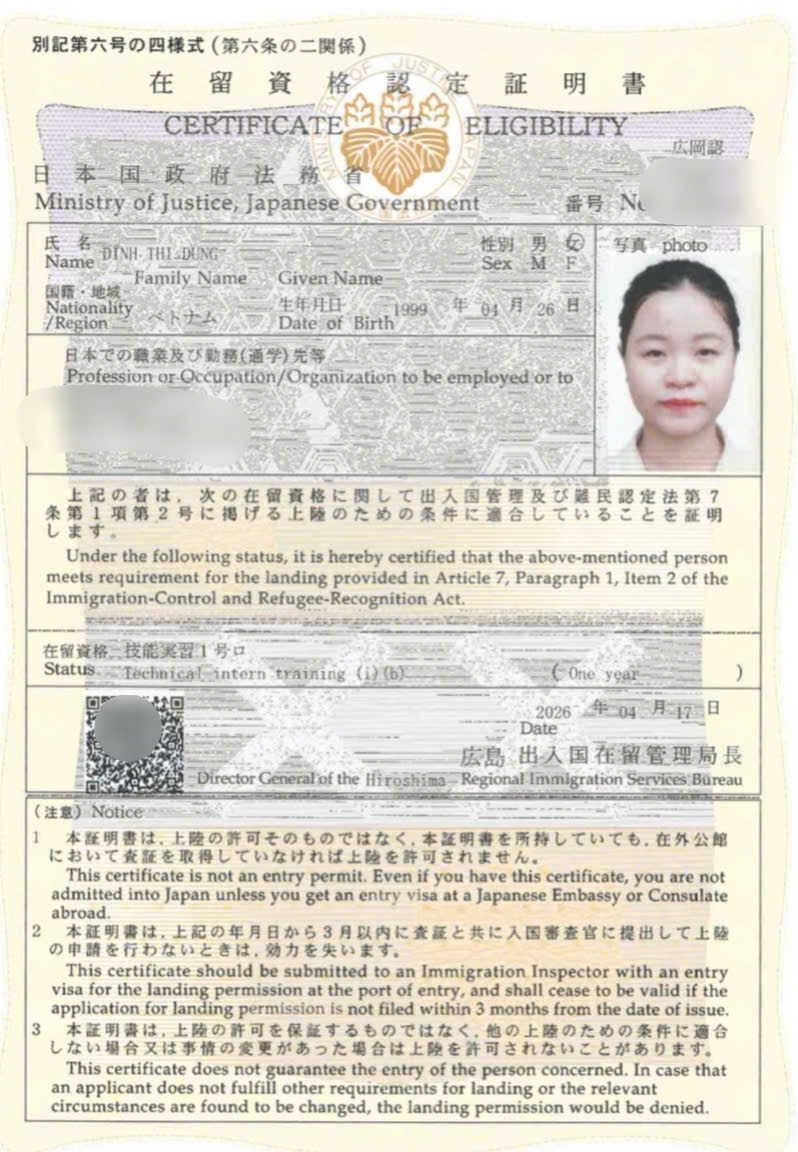 別記第六号の四様式 (第六条の二関係)
在留資格認定証明書
CERTIFICATE OF ELIGIBILITY
MINISTRY OF JUSTICE, JAPAN
広岡認
日本国政府法務省
Ministry of Justice, Japanese Government 番号 No
氏名 DINH THI DUNG 性別 男 女 写真 photo
Name Sex M F
Family Name Given Name
国籍・地域 生年月日 1999 年 04 月 26 日
Nationality ベトナム Date of Birth
/Region
日本での職業及び勤務(通学)先等
Profession or Occupation/Organization to be employed or to
上記の者は,次の在留資格に関して出入国管理及び難民認定法第7
条第1項第2号に掲げる上陸のための条件に適合していることを証明
します。
Under the following status, it is hereby certified that the above-mentioned person
meets requirement for the landing provided in Article 7, Paragraph 1, Item 2 of the
Immigration-Control and Refugee-Recognition Act.
在留資格 技能実習1号ロ
Status Technical intern training (i)(b) ( One year )
2026 年 04 月 17 日
Date
広島 出入国在留管理局長
Director General of the Hiroshima Regional Immigration Services Bureau
(注意) Notice
1 本証明書は,上陸の許可そのものではなく,本証明書を所持していても,在外公館
において査証を取得していなければ上陸を許可されません。
This certificate is not an entry permit. Even if you have this certificate, you are not
admitted into Japan unless you get an entry visa at a Japanese Embassy or Consulate
abroad.
2 本証明書は,上記の年月日から3月以内に査証と共に入国審査官に提出して上陸
の申請を行わないときは,効力を失います。
This certificate should be submitted to an Immigration Inspector with an entry
visa for the landing permission at the port of entry, and shall cease to be valid if the
application for landing permission is not filed within 3 months from the date of issue.
3 本証明書は,上陸の許可を保証するものではなく,他の上陸のための条件に適合
しない場合又は事情の変更があった場合は上陸を許可されないことがあります。
This certificate does not guarantee the entry of the person concerned. In case that
an applicant does not fulfill other requirements for landing or the relevant
circumstances are found to be changed, the landing permission would be denied.